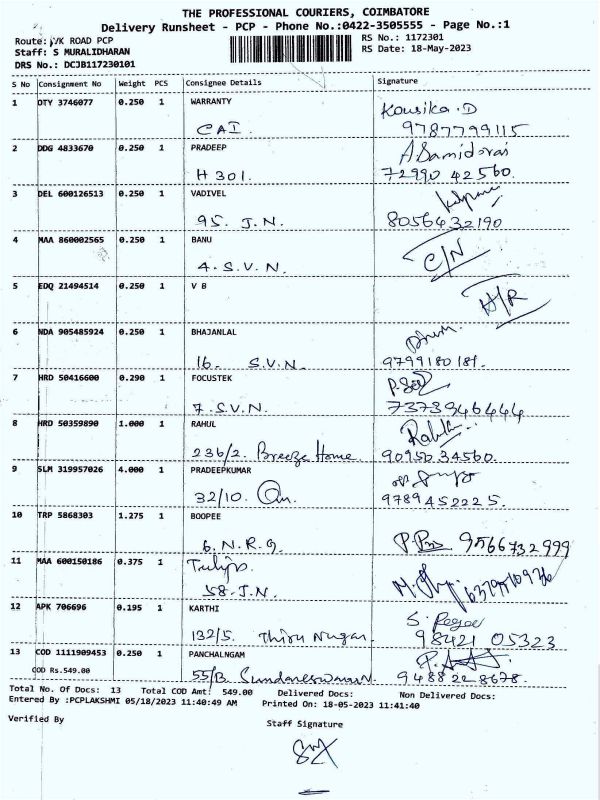 THE PROFESSIONAL COURIERS, COIMBATORE
Delivery Runsheet - PCP - Phone No.:0422-3505555 - Page No.:1
Route: VK ROAD PCP RS No.: 1172301
Staff: S MURALIDHARAN RS Date: 18-May-2023
DRS No.: DCJB117230101
S No Consignment No Weight PCS Consignee Details Signature
1 OTY 3746077 0.250 1 WARRANTY Kousika.D
CAI. 9787799115
2 DDG 4833670 0.250 1 PRADEEP
H 301. 72990 42560.
3 DEL 600126513 0.250 1 VADIVEL
95. J.N. 8056432190
4 MAA 860002565 0.250 1 BANU C/N
4. S.V.N.
5 EDQ 21494514 0.250 1 V B
6 NDA 905485924 0.250 1 BHAJANLAL
16. S.V.N. 9799180181.
7 HRD 50416600 0.290 1 FOCUSTEK
7. S.V.N. 7373946444
8 HRD 50359890 1.000 1 RAHUL
236/2. Breeze Home. 90950 34560.
9 SLM 319957026 4.000 1 PRADEEPKUMAR
32/10. 9789452225.
10 TRP 5868303 1.275 1 BOOPEE
6. N.R.G. 9566732999
11 MAA 600150186 0.375 1
58. J.N.
12 APK 706696 0.195 1 KARTHI
132/5. Thiru Nagar 98421 05323
13 COD 1111909453 0.250 1 PANCHALNGAM
COD Rs.549.00 55/B. 9488228678.
Total No. Of Docs: 13 Total COD Amt: 549.00 Delivered Docs: Non Delivered Docs:
Entered By :PCPLAKSHMI 05/18/2023 11:40:49 AM Printed On: 18-05-2023 11:41:40
Verified By Staff Signature